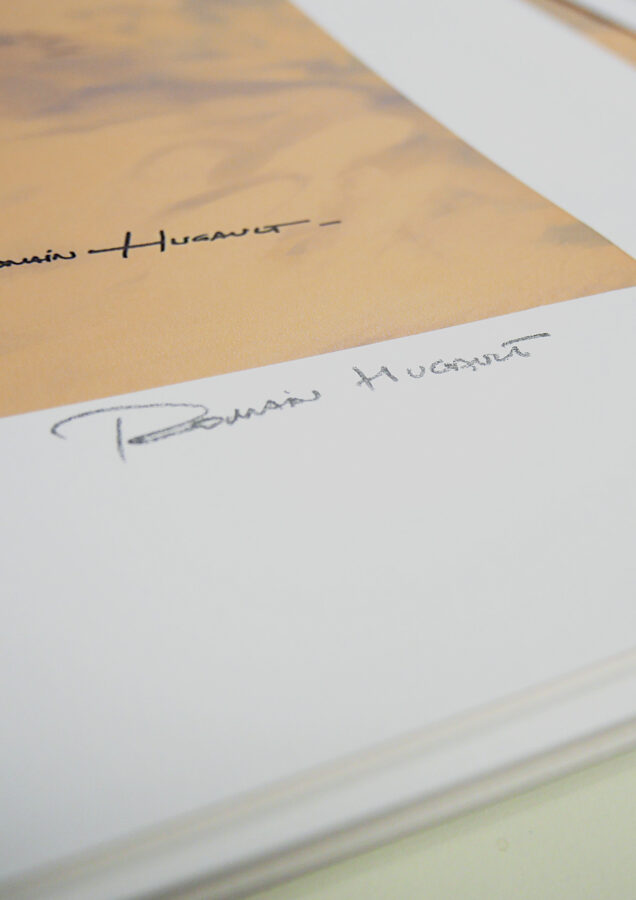 omain Hugault -
Romain Hugault